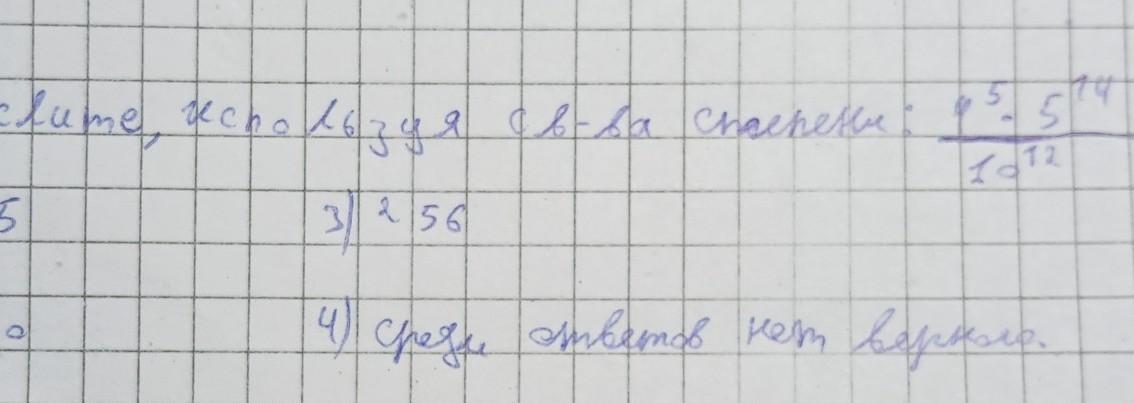 слите, используя св-ва степени: 4^5 · 5^14 / 10^12
5 3) 256
0 4) среди ответов нет верного.